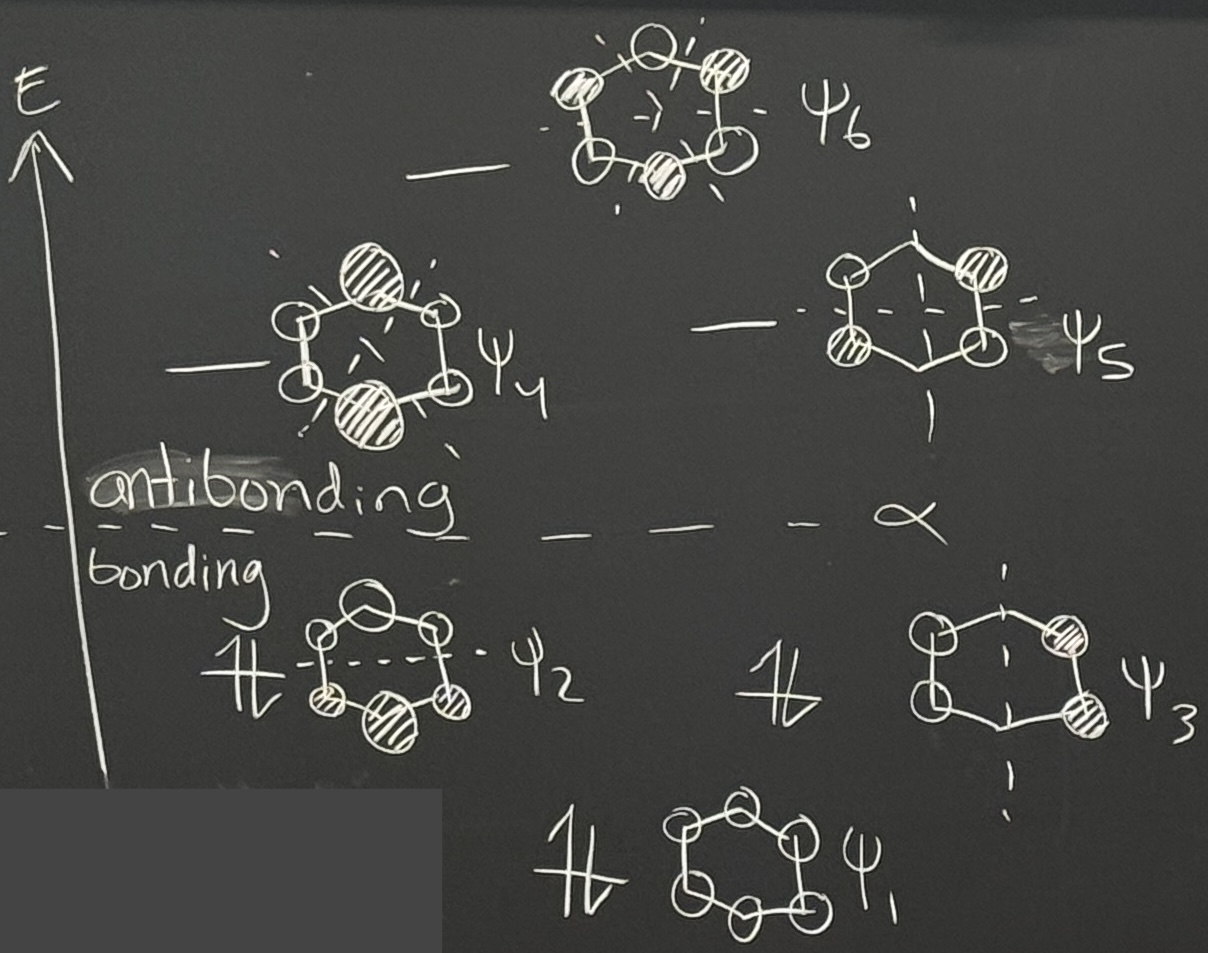 E
ψ6
ψ4
ψ5
antibonding
α
bonding
ψ2
ψ3
ψ1